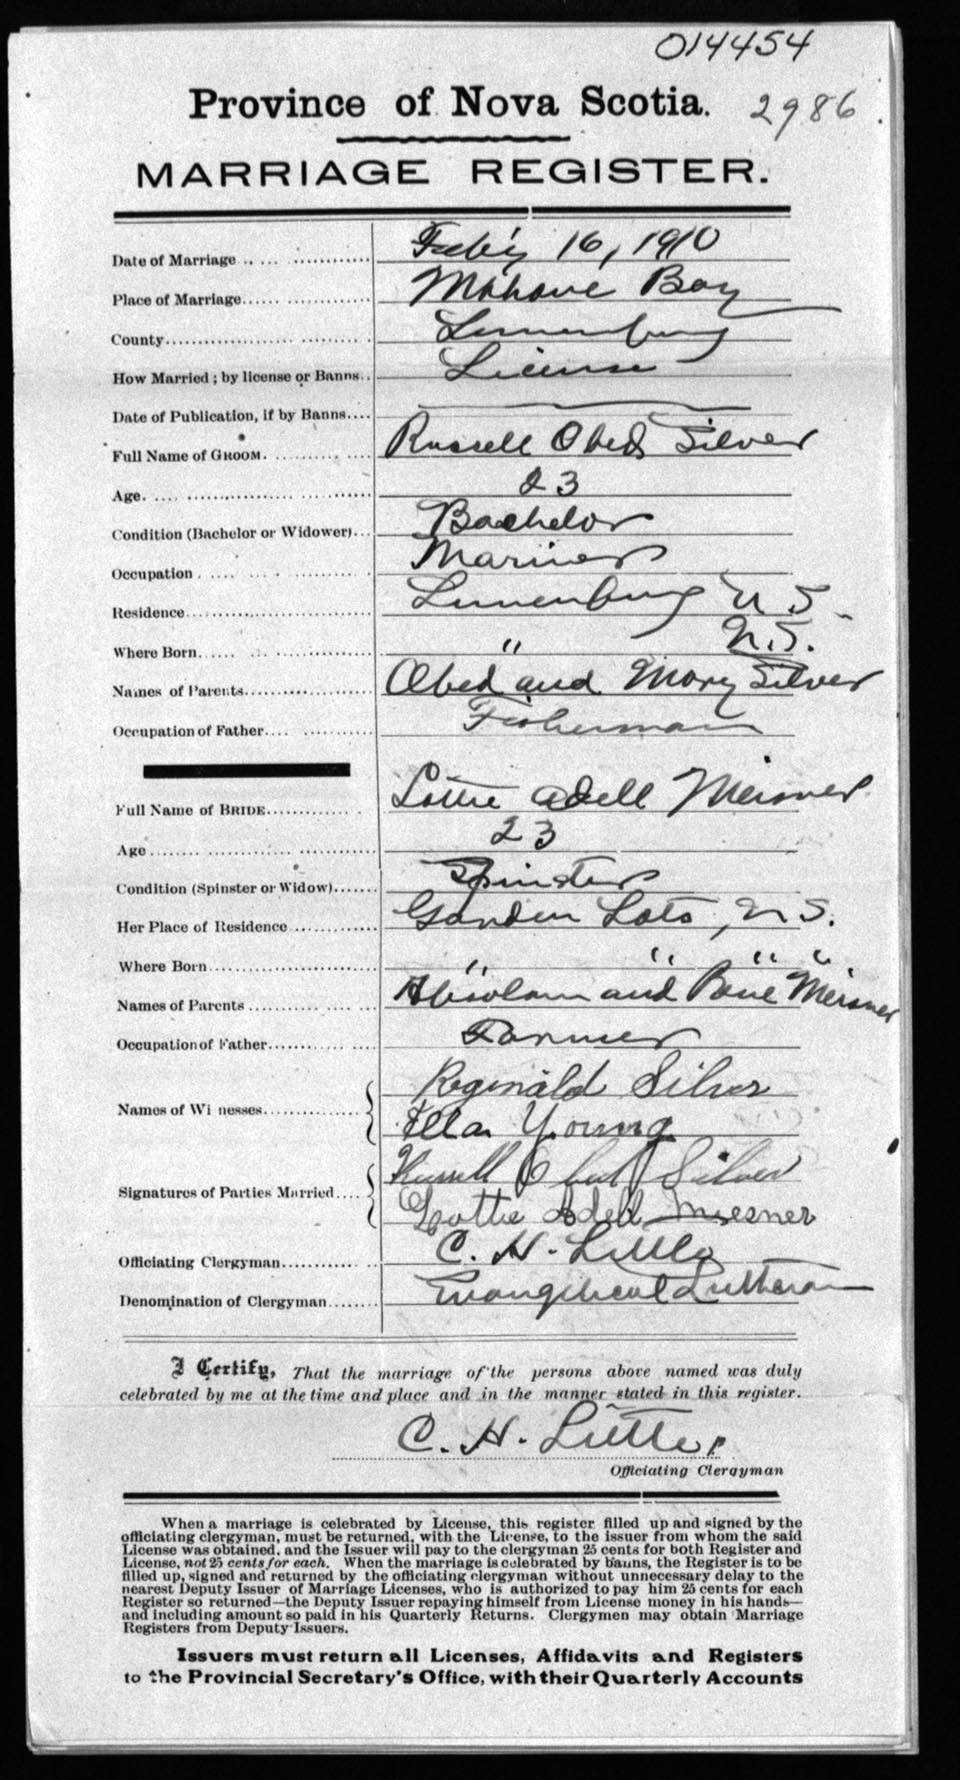 014454
Province of Nova Scotia. 2986
MARRIAGE REGISTER.
Date of Marriage Feb'y 16, 1910
Place of Marriage Mahone Bay
County Lunenburg
How Married; by license or Banns License
Date of Publication, if by Banns
Full Name of GROOM. Russell Obed Silver
Age. 23
Condition (Bachelor or Widower) Bachelor
Occupation Mariner
Residence Lunenburg N S
Where Born " N.S.
Names of Parents Obed and Mary Silver
Occupation of Father Fisherman
Full Name of BRIDE Lottie Adell Meisner
Age 23
Condition (Spinster or Widow) Spinster
Her Place of Residence Garden Lots, N S.
Where Born " " " "
Names of Parents Absolam and Meisner
Occupation of Father Farmer
Names of Witnesses Reginald Silver
Ella Young
Signatures of Parties Married Russell Obed Silver
Lottie Adell Miesner
Officiating Clergyman C. H. Little
Denomination of Clergyman Evangelical Lutheran
I Certify, That the marriage of the persons above named was duly
celebrated by me at the time and place and in the manner stated in this register.
C. H. Little
Officiating Clergyman
When a marriage is celebrated by License, this register filled up and signed by the
officiating clergyman, must be returned, with the License, to the issuer from whom the said
License was obtained, and the Issuer will pay to the clergyman 25 cents for both Register and
License, not 25 cents for each. When the marriage is celebrated by banns, the Register is to be
filled up, signed and returned by the officiating clergyman without unnecessary delay to the
nearest Deputy Issuer of Marriage Licenses, who is authorized to pay him 25 cents for each
Register so returned—the Deputy Issuer repaying himself from License money in his hands—
and including amount so paid in his Quarterly Returns. Clergymen may obtain Marriage
Registers from Deputy Issuers.
Issuers must return all Licenses, Affidavits and Registers
to the Provincial Secretary's Office, with their Quarterly Accounts